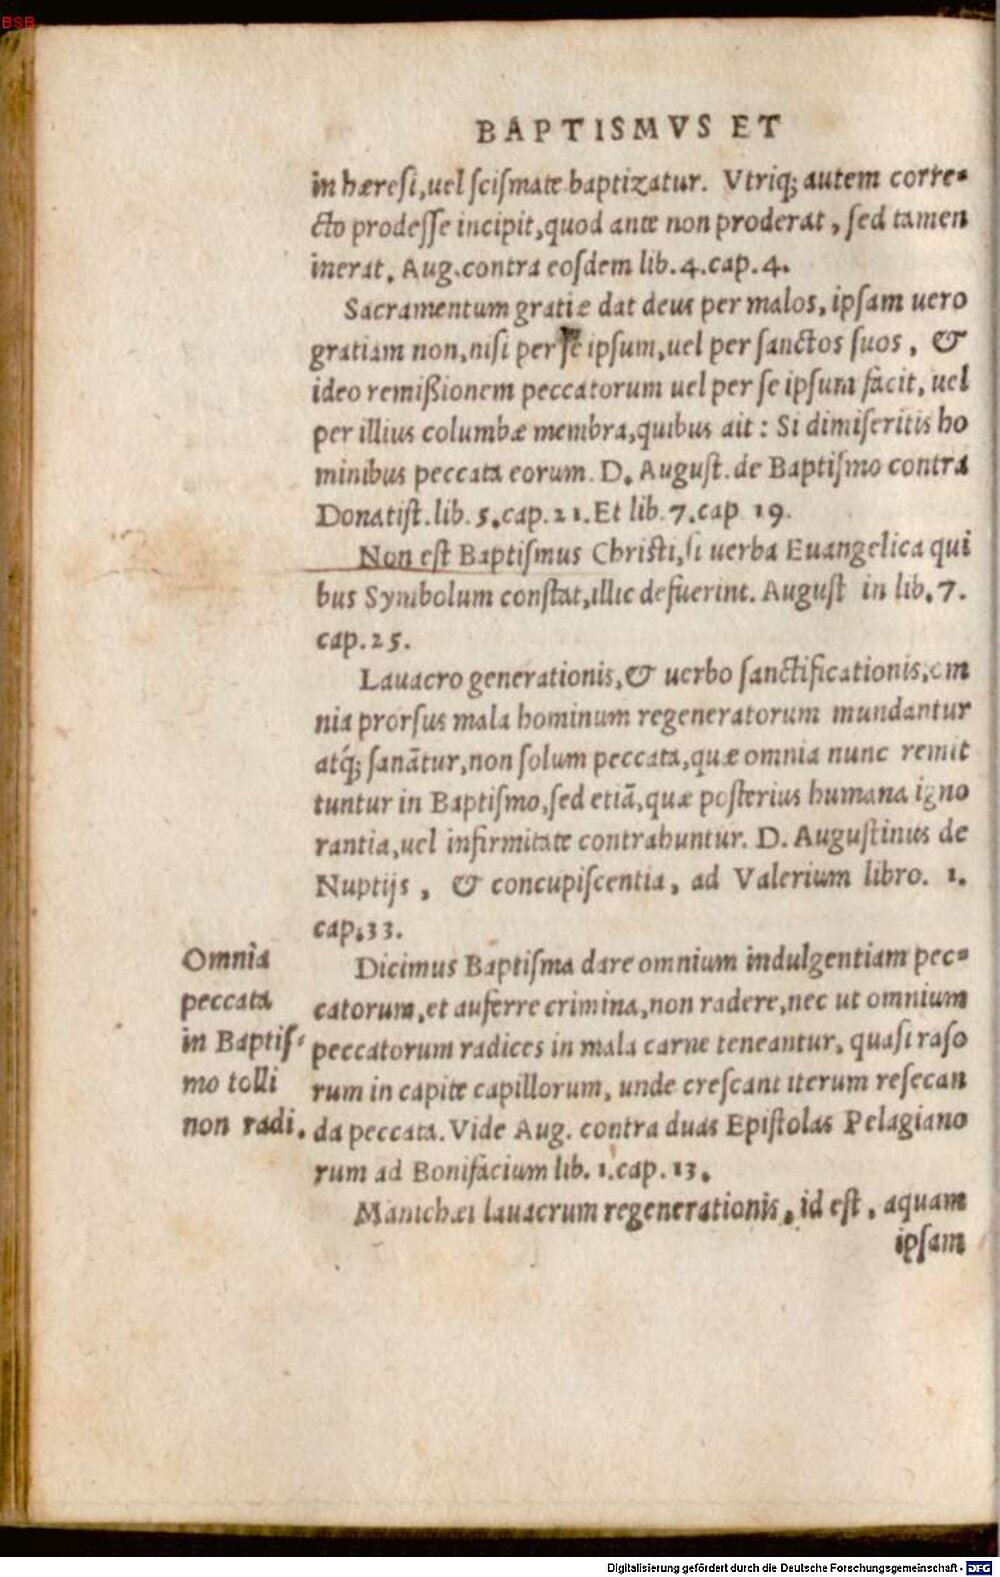 BSB
BAPTISMVS ET
in hæresi, uel scismate baptizatur. Vtriq; autem corre-
cto prodesse incipit, quod ante non proderat, sed tamen
inerat. Aug. contra eosdem lib. 4. cap. 4.
Sacramentum gratiæ dat deus per malos, ipsam uero
gratiam non, nisi per se ipsum, uel per sanctos suos, &
ideo remißionem peccatorum uel per se ipsum facit, uel
per illius columbæ membra, quibus ait: Si dimiseritis ho
minibus peccata eorum. D. August. de Baptismo contra
Donatist. lib. 5. cap. 21. Et lib. 7. cap 19.
Non est Baptismus Christi, si uerba Euangelica qui
bus Symbolum constat, illic defuerint. August in lib. 7.
cap. 25.
Lauacro generationis, & uerbo sanctificationis, om
nia prorsus mala hominum regeneratorum mundantur
atq́; sanãtur, non solum peccata, quæ omnia nunc remit
tuntur in Baptismo, sed etiã, quæ posterius humana igno
rantia, uel infirmitate contrahuntur. D. Augustinus de
Nuptijs, & concupiscentia, ad Valerium libro. 1.
cap. 33.
Dicimus Baptisma dare omnium indulgentiam pec-
catorum, et auferre crimina, non radere, nec ut omnium
peccatorum radices in mala carne teneantur, quasi raso
rum in capite capillorum, unde crescant iterum resecan
da peccata. Vide Aug. contra duas Epistolas Pelagiano
rum ad Bonifacium lib. 1. cap. 13.
Manichæi lauacrum regenerationis, id est, aquam
ipsam
Omnia
peccata
in Baptis-
mo tolli
non radi.
Digitalisierung gefördert durch die Deutsche Forschungsgemeinschaft - DFG